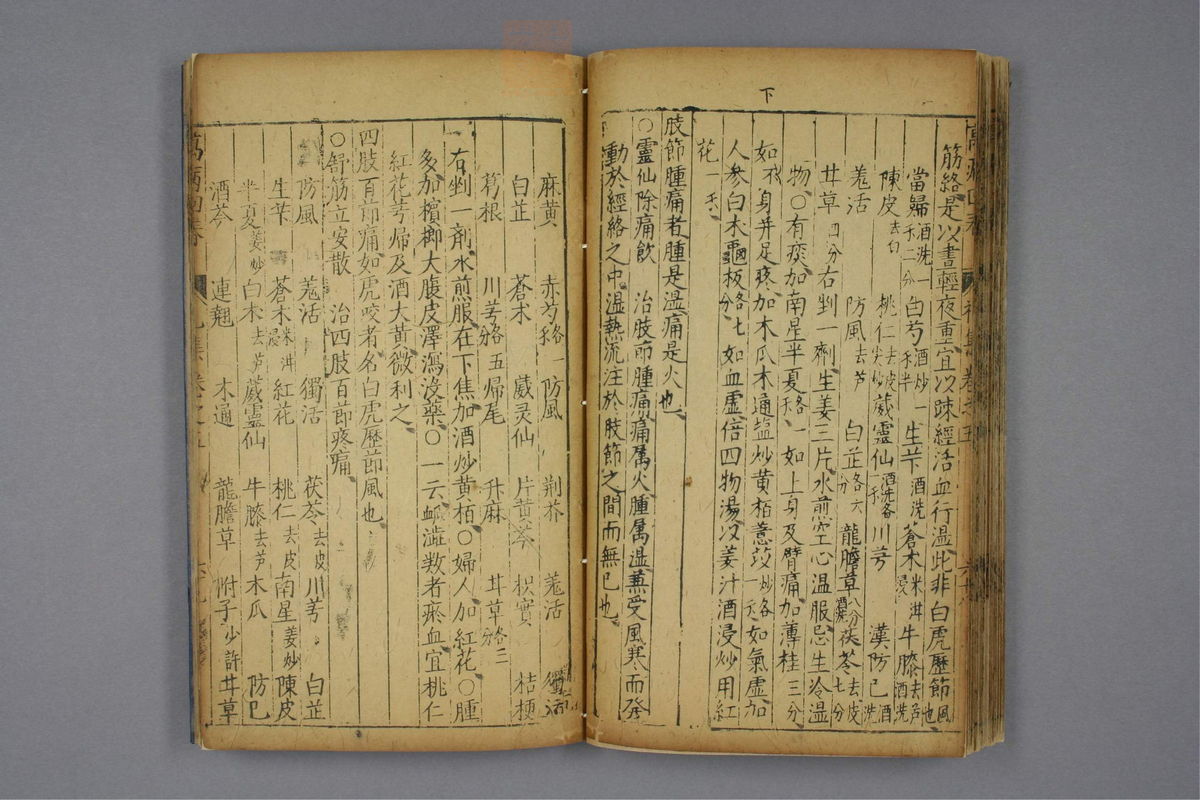 下
筋絡是以晝輕夜重宜以疎經活血行濕此非白虎歷節風也
當歸酒洗一錢二分白芍酒炒一錢半生苄酒洗蒼朮米泔浸牛膝去芦酒洗
陳皮去白桃仁去皮尖炒葳靈仙酒洗各一錢川芎漢防已酒洗
羗活防風去芦白芷各六分龍膽草八分酒洗茯苓去皮七分
甘草四分右剉一劑生姜三片水煎空心温服忌生冷濕
物○有痰加南星半夏各一錢如上身及臂痛加薄桂三分
如下身并足疼加木瓜木通塩炒黄栢薏苡炒各一錢如氣虛加
人參白朮龜板各七分如血虛倍四物湯以姜汁酒浸炒用紅
花一錢
肢節腫痛者腫是濕痛是火也
○靈仙除痛飲　治肢節腫痛痛属火腫属濕兼受風寒而發
動於經絡之中濕熱流注於肢節之間而無已也
麻黄　赤芍各一錢防風　荆芥　羗活　獨活
白芷　蒼朮　葳灵仙　片黄芩　枳實　桔梗
葛根　川芎各五分歸尾　升麻　甘草各三分
右剉一劑水煎服在下焦加酒炒黄栢○婦人加紅花○腫
多加檳榔大腹皮澤瀉沒藥○一云脉澁数者瘀血宜桃仁
紅花芎歸及酒大黄微利之
四肢百節痛如虎咬者名白虎歷節風也
○舒筋立安散　治四肢百節疼痛
防風　羗活　獨活　茯苓去皮川芎　白芷
生苄　蒼朮米泔浸紅花　桃仁去皮南星姜炒陳皮
半夏姜炒白朮去芦葳靈仙　牛膝去芦木瓜　防已
酒芩　連翹　木通　龍膽草　附子少許甘草
萬病回春　卷之五